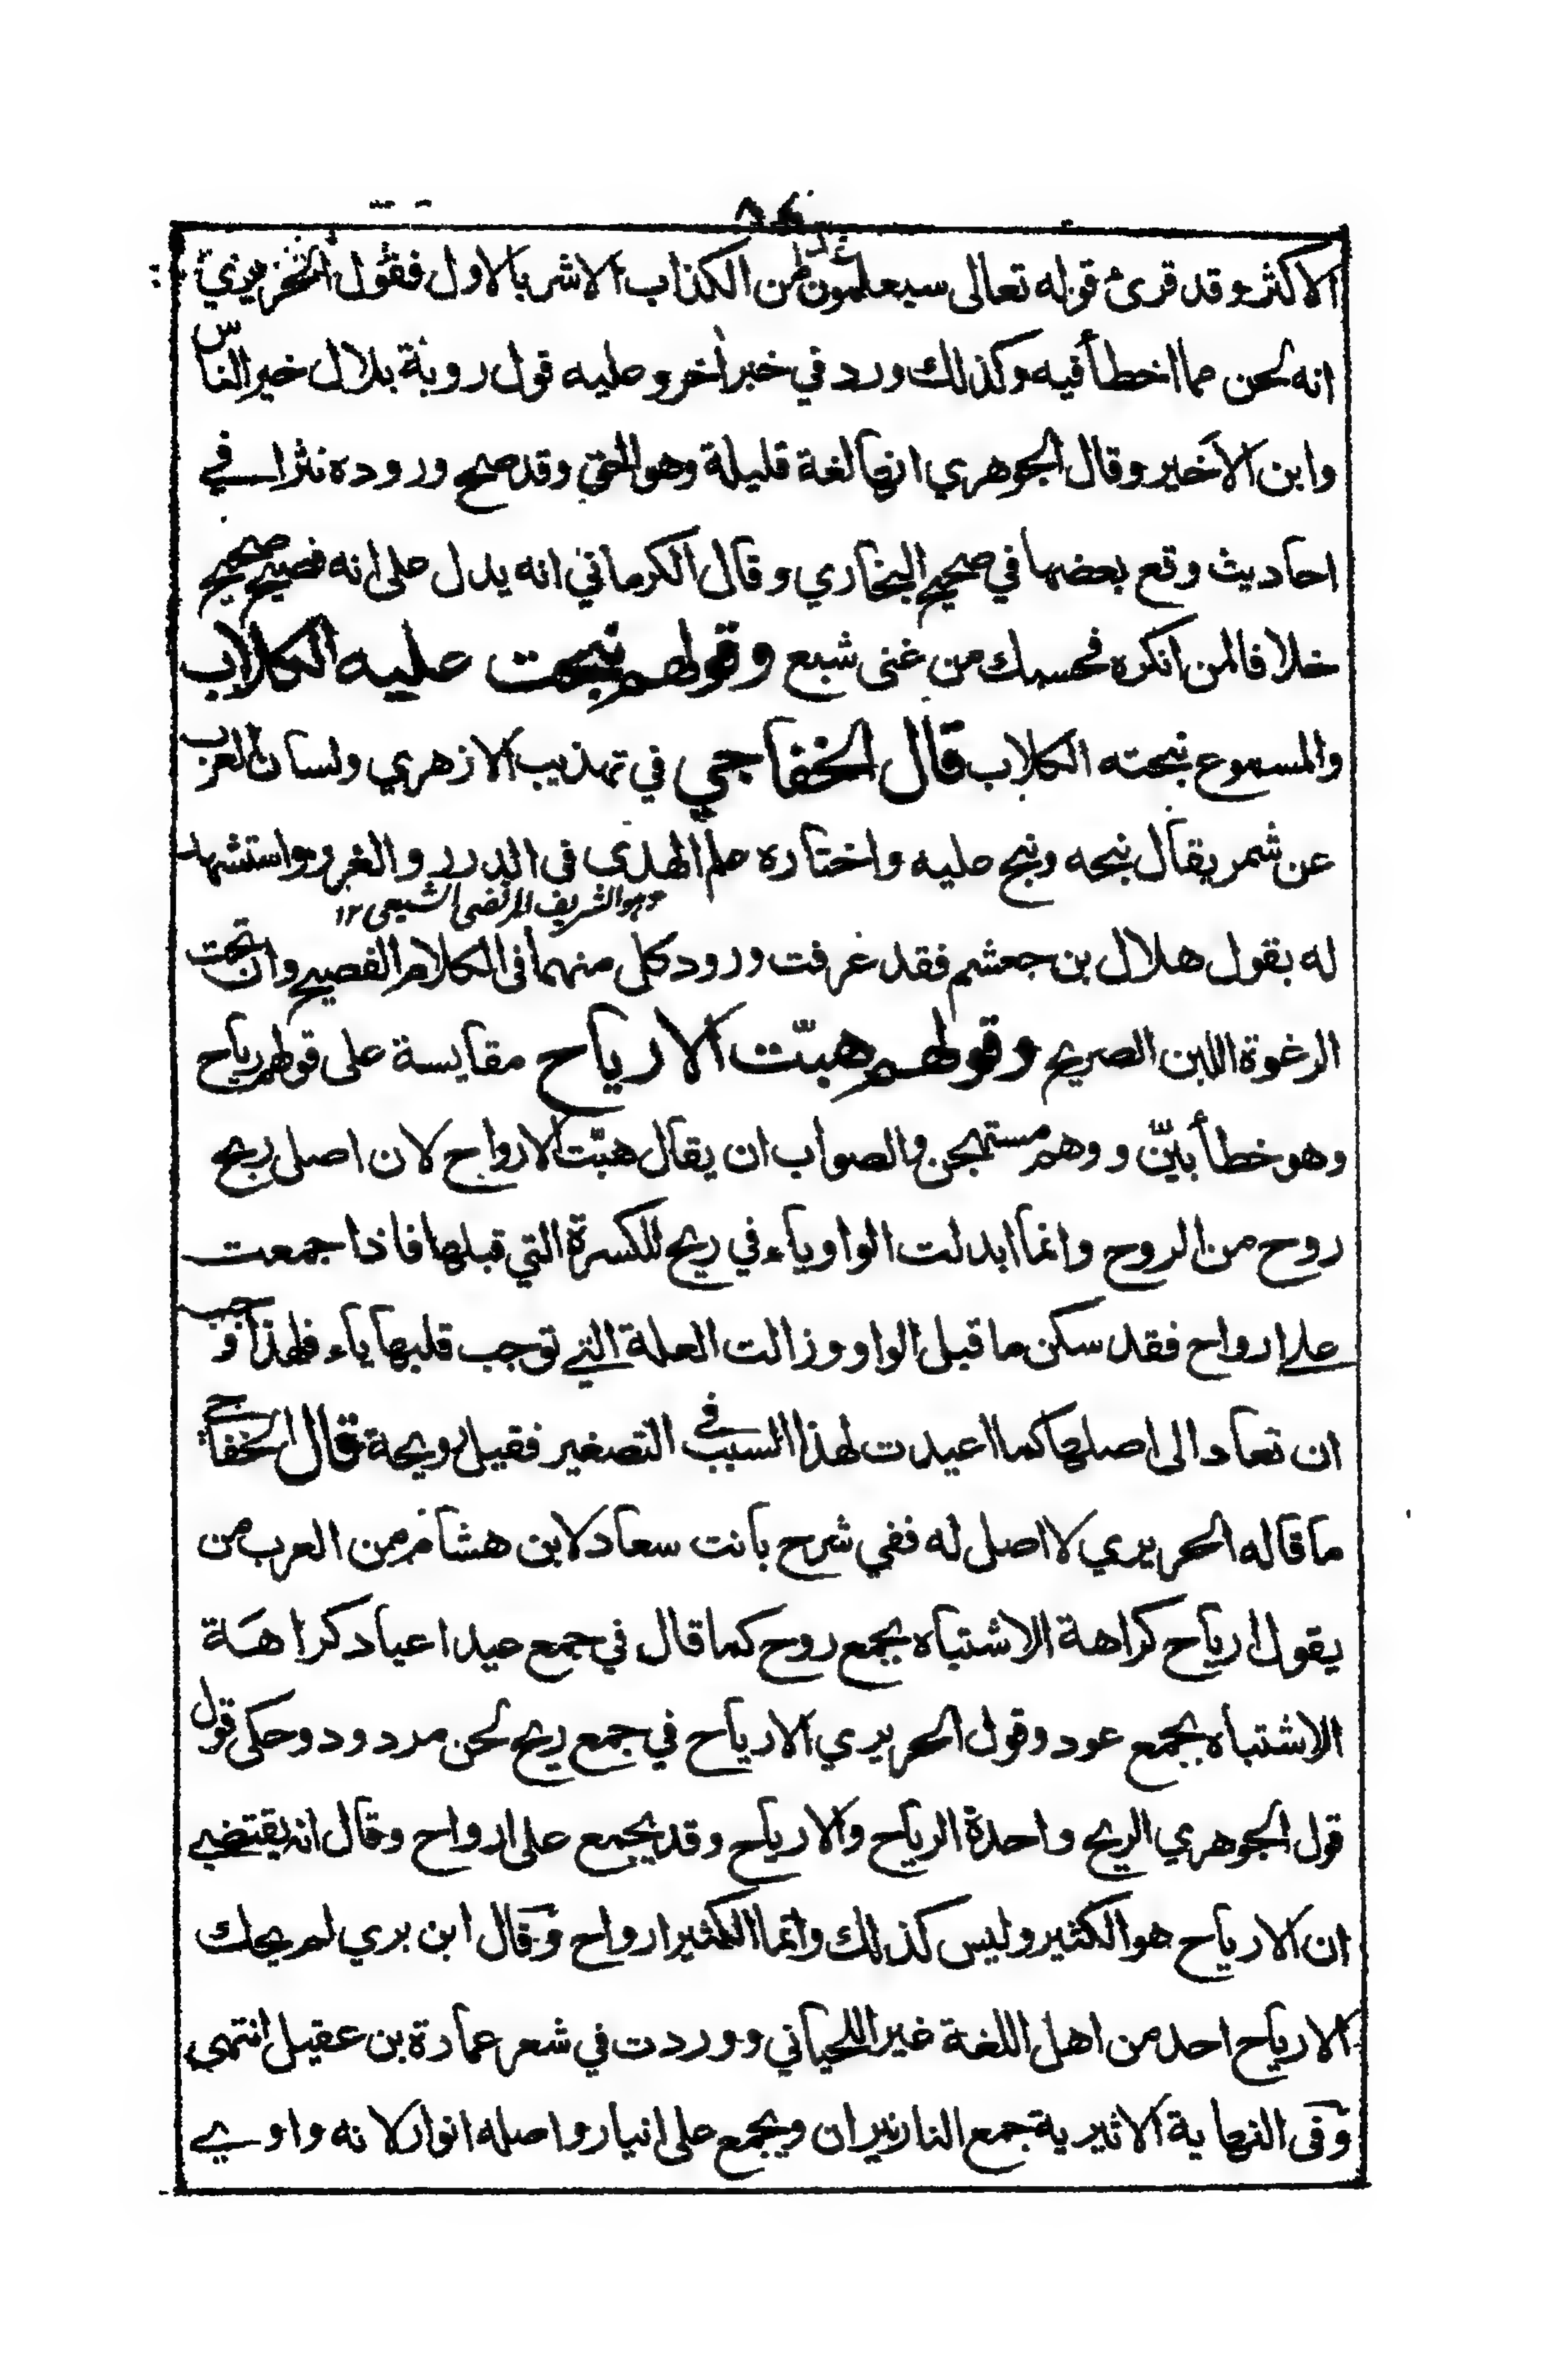 الاكثر وقد قرئ قوله تعالى سيعلمون غدا من الكذاب الاشر بالاول فقول الحريري
انه لحن مما اخطأ فيه وكذلك ورد في خبر اٰخر وعليه قول روبة بلال خير الناس
وابن الاَخير وقال الجوهري انها لغة قليلة وهو الحق وقد صح وروده نثرا في
احاديث وقع بعضها في صحيح البخاري وقال الكرماني انه يدل على انه فصيح صحيح
خلافا لمن انكره فحسبك من غنى شبع وقولهم نبحت عليه الكلاب
والمسموع نبحته الكلاب قال الخفاجي في تهذيب الازهري ولسان العرب
عن شمر يقال نبحه ونبح عليه واختاره علم الهدى فى الدرر والغرر واستشهد
وهو الشريف المرتضى الشيعى ١٢
له بقول هلال بن جعشم فقد عرفت ورود كل منهما فى الكلام الفصيح وان تحت
الرغوة اللبن الصريح وقولهم هبّت الارياح مقايسة على قولهم رياح
وهو خطأ بيّن ووهم مستهجن والصواب ان يقال هبّت الارواح لان اصل ريح
روح من الروح وانما ابدلت الواو ياء في ريح للكسرة التي قبلها فاذا جمعت
على ارواح فقد سكن ما قبل الواو وزالت العلة التي توجب قلبها ياء فلهذا وجب
ان تعاد الى اصلها كما اعيدت لهذا السبب في التصغير فقيل رويحة قال الخفاجي
ما قاله الحريري لا اصل له ففي شرح بانت سعاد لابن هشام من العرب من
يقول ارياح كراهة الاشتباه بجمع روح كما قال في جمع عيد اعياد كراهَة
الاشتباه بجمع عود وقول الحريري الارياح في جمع ريح لحن مردود وحكى قول
قول الجوهري الريح واحدة الرياح والارياح وقد يجمع على ارواح وقال انه يقتضي
ان الارياح هو الكثير وليس كذلك وانما الكثير ارواح وقال ابن بري لم يحك
الارياح احد من اهل اللغة غير اللحياني ووردت في شعر عمارة بن عقيل انتهى
وفى النهاية الاثيرية جمع النار نيران ويجمع على انيار واصله انوار لانه واوي